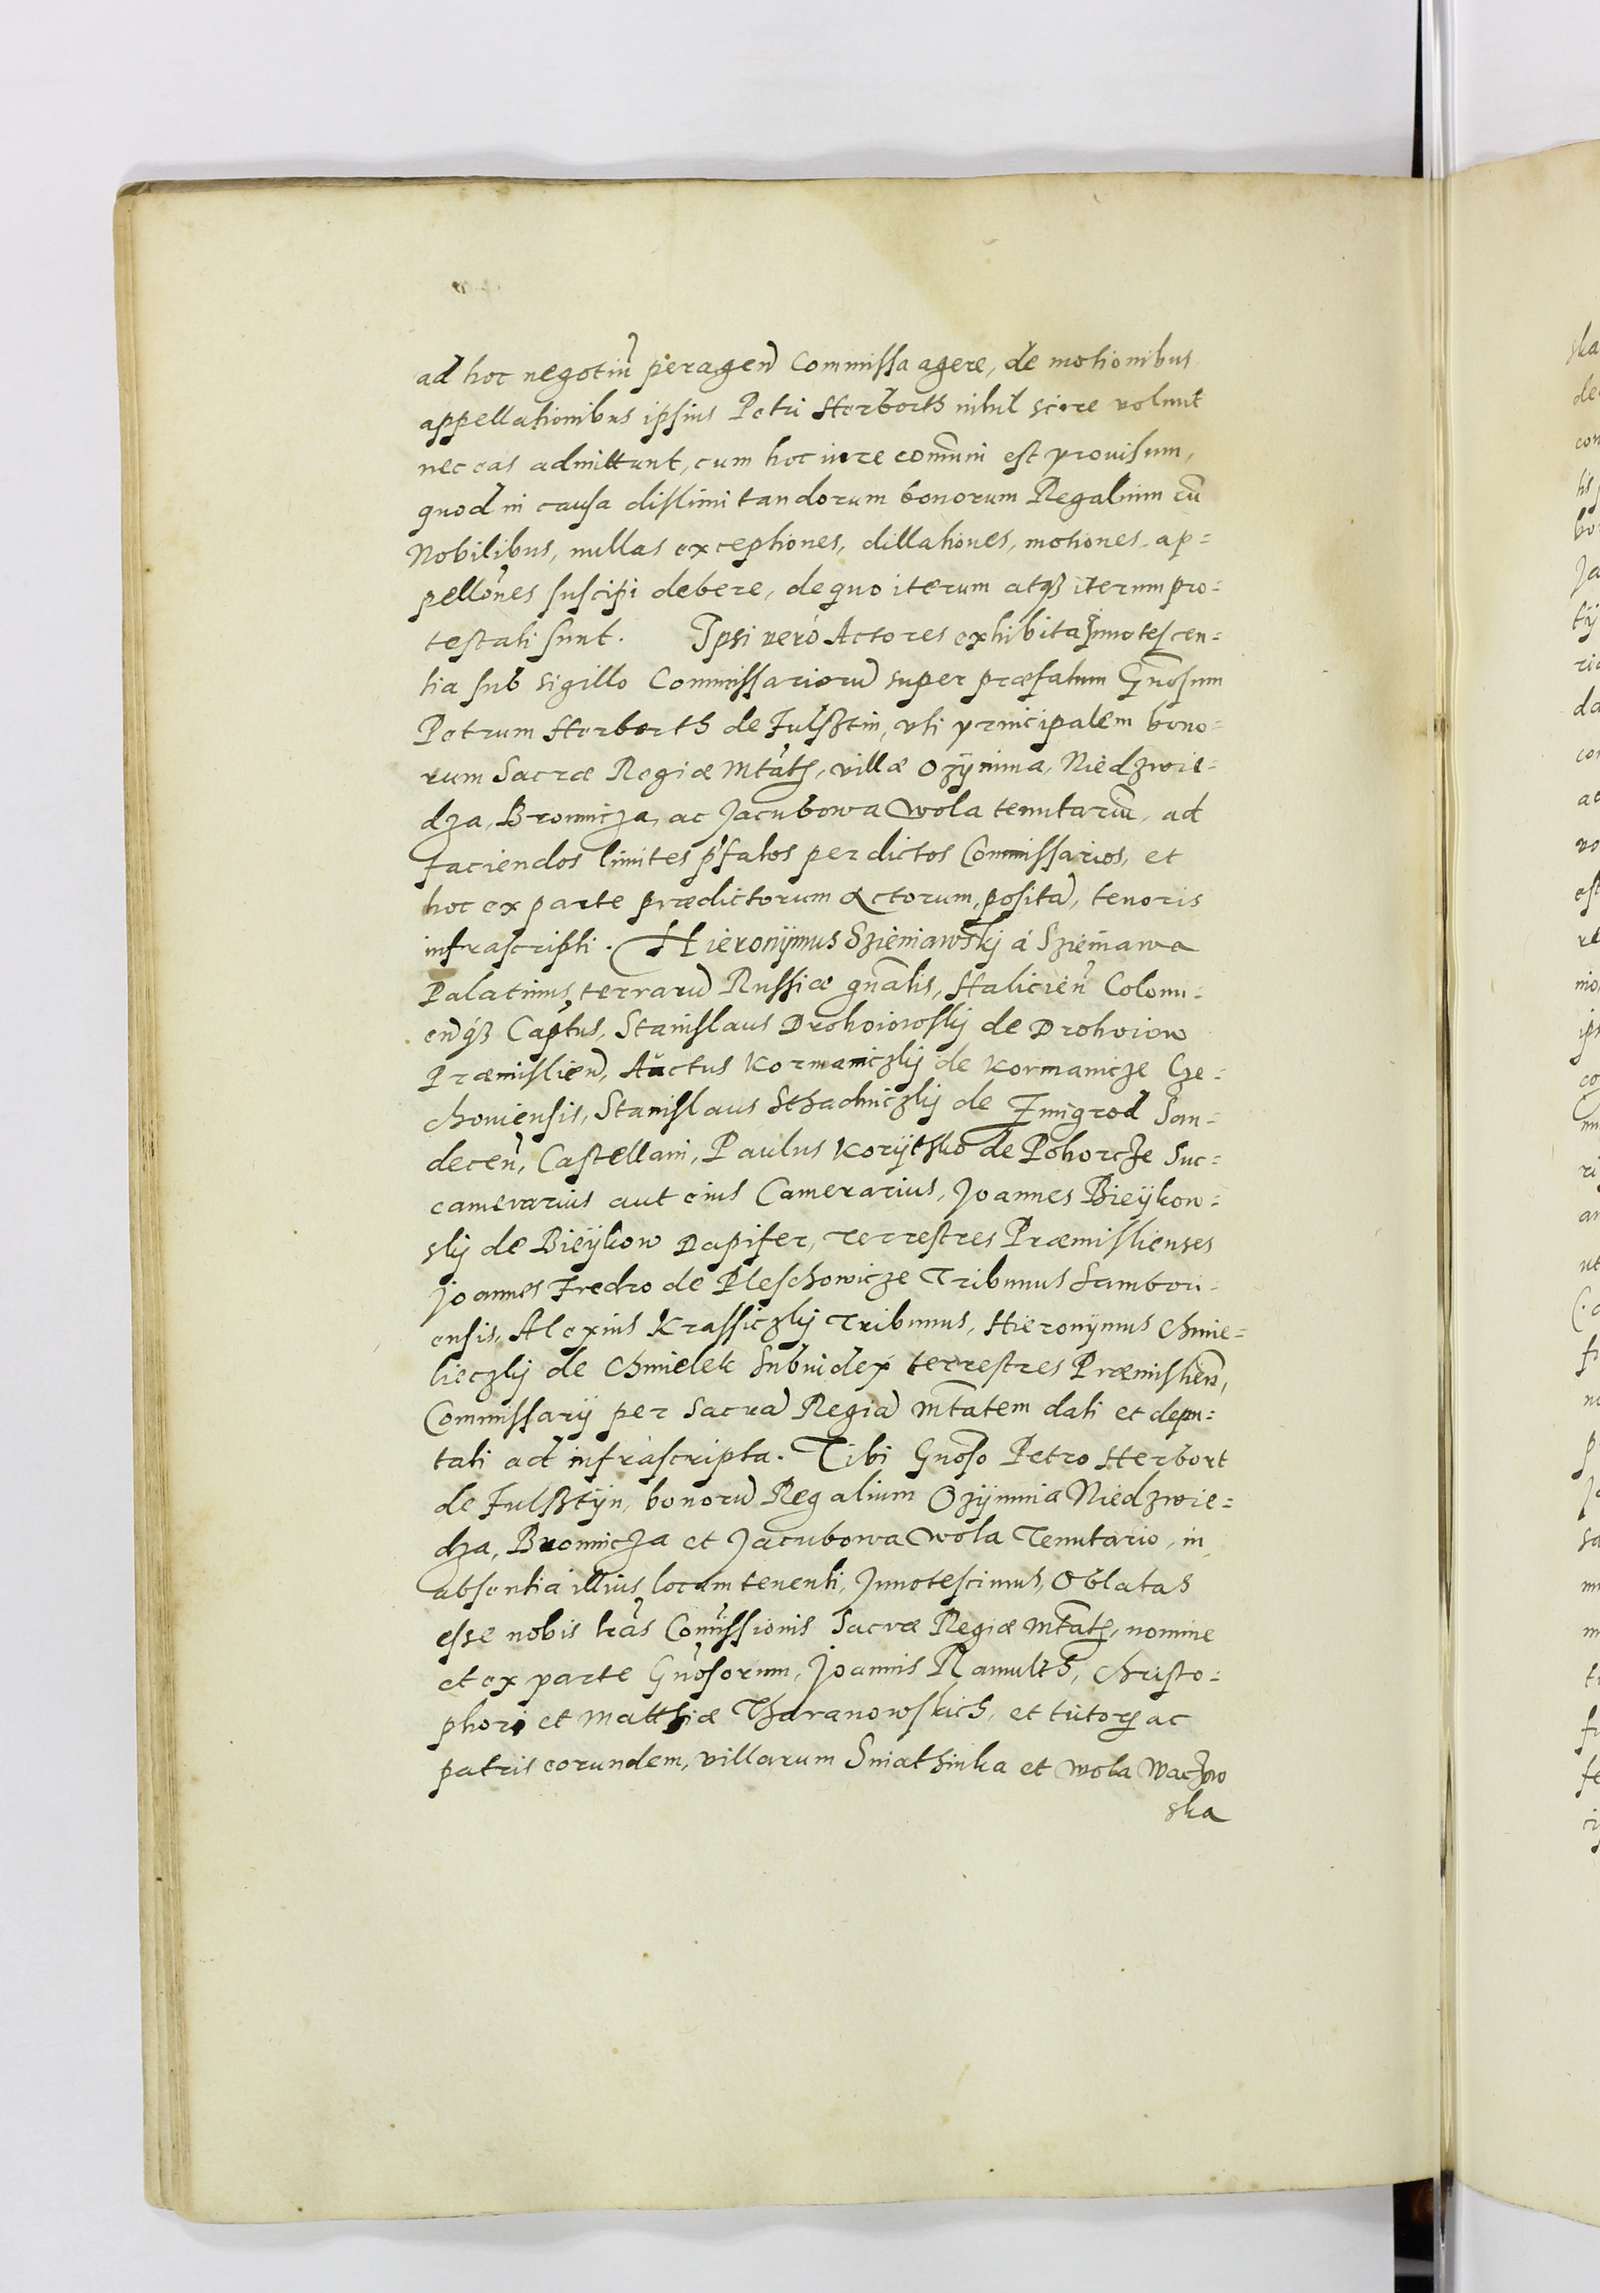 ad hoc negotiu peragend Commissa agere, de motionibus
appellationibus ipsius Petri Herborth nihil scire volunt
nec eas admittunt, cum hoc iure comuni est prouisum,
quod in causa dislimitandorum bonorum Regalium cu
Nobilibus, nullas exceptiones, dillationes, motiones, ap=
pellones suscipi debere, de quo iterum atq3 iterum pro=
testati sunt. Ipsi verò Actores exhibita Innotescen=
tia sub sigillo Commissarioru super præfatum Gnosum
Petrum Herborth de Fulsztin, vti principalem bono=
rum Sacræ Regiæ Mtatis, villæ Ozÿmina, Niedzwie=
dza, Bronnicza, ac Jacubowa Wola tenutariu, ad
faciendos limites pfatos per dictos Commissarios, et
hoc ex parte prædictorum Actorum, posita, tenoris
infrascripti. Hieronÿmus Szieniawskÿ á Szieniawa
Palatinus terraru Russiæ gnalis, Haliciên Colomi=
enq3 Captus, Stanislaus Drohoiowskÿ de Drohoiow
Præmislien, Auctus Kormaniczkÿ de Kormanicze Cze=
choniensis, Stanislaus Sthadniczkÿ de Zmigrod San=
decen, Castellani, Paulus Korÿtsko de Pohorcze Suc=
camerarius aut eius Camerarius, Joannes Bieÿkow=
skÿ de Bieÿkow Dapifer, Terrestres Præmislienses
Joannes Fredro de Pleschowicze Tribunus Sambori=
ensis, Alexius Krassiczkÿ Tribunus, Hieronÿmus Chmie=
lieczkÿ de Chmielek Subiudex terrestres Præmislien,
Commissarÿ per Sacra Regia Mtatem dati et depu=
tati ad infrascripta. Tibi Gnoso Petro Herbort
de Fulsztÿn, bonoru Regalium Ozÿmina Niedzwie=
dza, Bronnicza et Jacubowa Wola Tenutario, in
absentia illius locum tenenti, Innotescimus, Oblatas
esse nobis lras Comissionis Sacræ Regiæ Mtatis, nomine
et ex parte Gnosorum, Joannis Ramulth, Christo=
phori et Matthiæ Tharanowskich, et tutoris ac
patris eorundem, villarum Sniathinka et Wola Waczow
ska